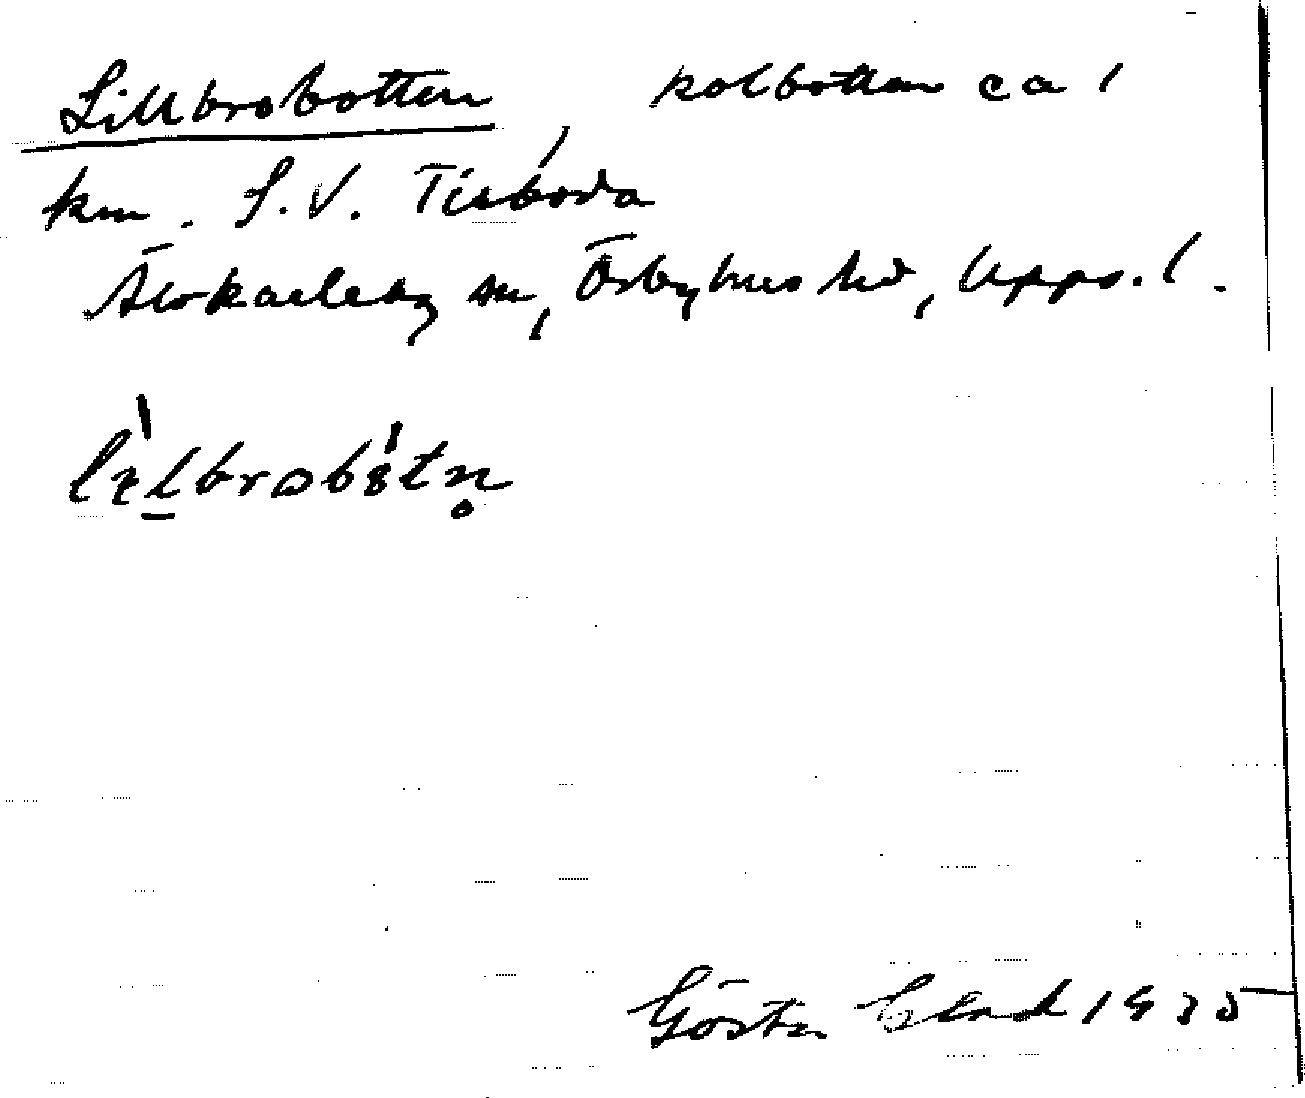 Lillbrobotten, kolbotten ca 1
km. S.V. Tisboda
Älvkarleby sn, Örbyhus hd, Upps. l.
Gösta 1935